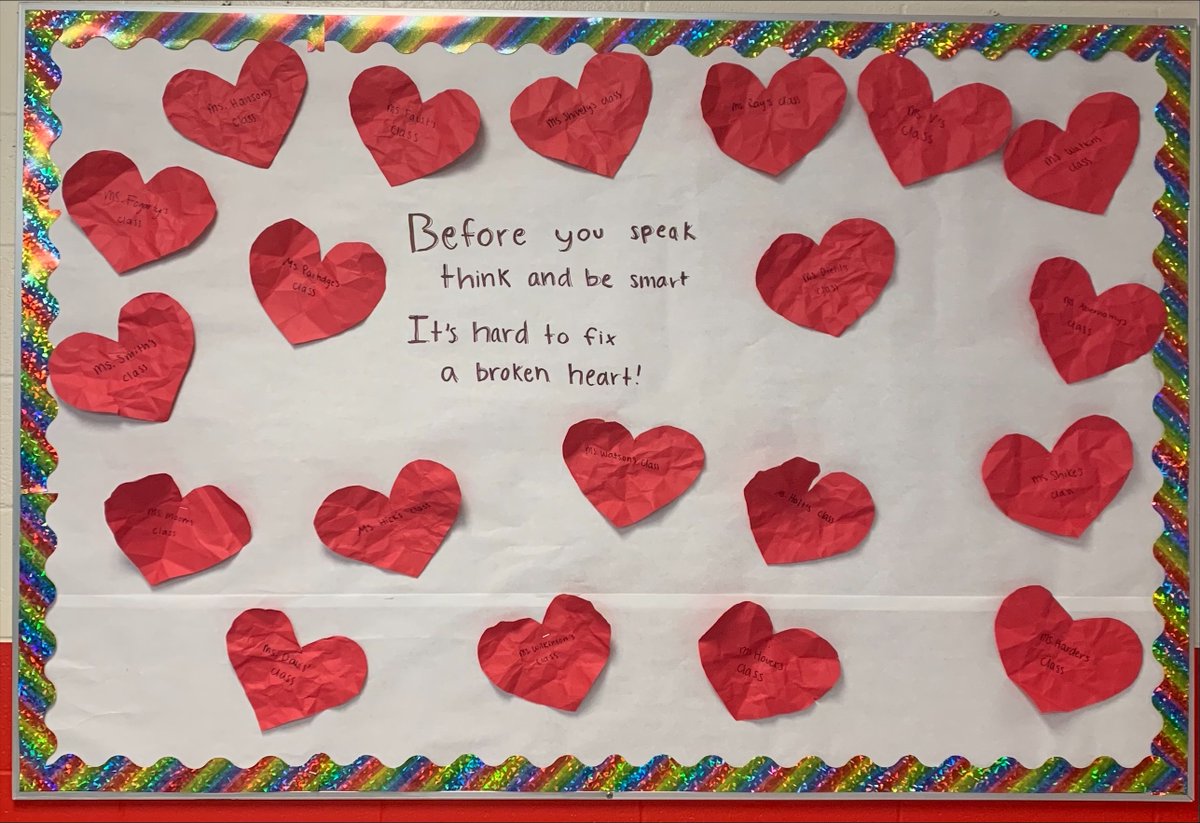 Ms. Hanson's
Class
Class
Ms Shively's class
Ms Ray's class
Ms V's
Class
Ms. Watkins
Class
Ms. Fogarty's
class
Ms Partridge's
class
Before you speak
think and be smart
It's hard to fix
a broken heart!
Ms Diehl's
class
Ms. Abernathy's
class
Ms. Smith's
class
Ms. Moon's
class
Ms. Hick's class
Ms Watson's class
Holt's class
Ms Shoke's
class
Ms. Davis'
class
Ms Wilkinson's
class
Ms Houck's
class
Ms Harder's
class